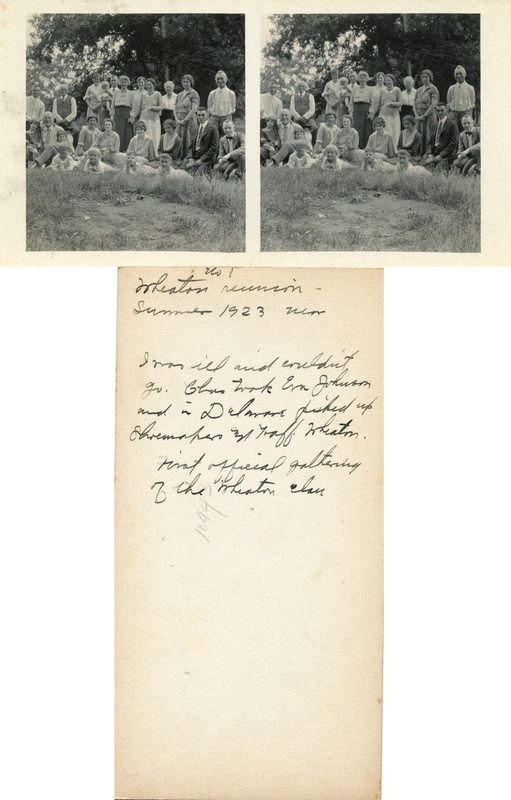 No 1
Wheaton reunion -
Summer 1923 near
I was ill and couldn't
go. Chas took Eva Johnson
and in Delaware picked up
Shoemakers and Wheaton.
First official gathering
of the Wheaton clan
1094